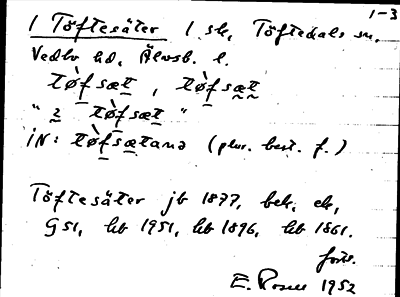 1-3
1 Töftesäter 1 sk, Töftedals sn,
Vedbo hd, Älvsb. l.
tø̀fsæt, tø̀fsæt
" 2 tø̀fsæt "
iN: tø̀fsætanə (plur. best. f.)
Töftesäter jb 1877, bek, ek,
G51, hb 1951, hb 1896, hb 1861.
forts.
E. Rosell 1952